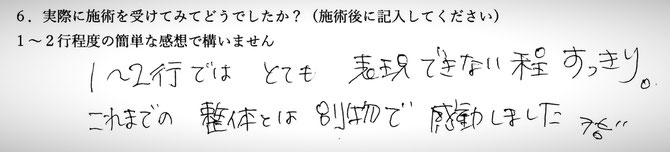 6．実際に施術を受けてみてどうでしたか？（施術後に記入してください）
1～2行程度の簡単な感想で構いません
1～2行では とても 表現できない程 すっきり。
これまでの 整体とは 別物で 感動しました